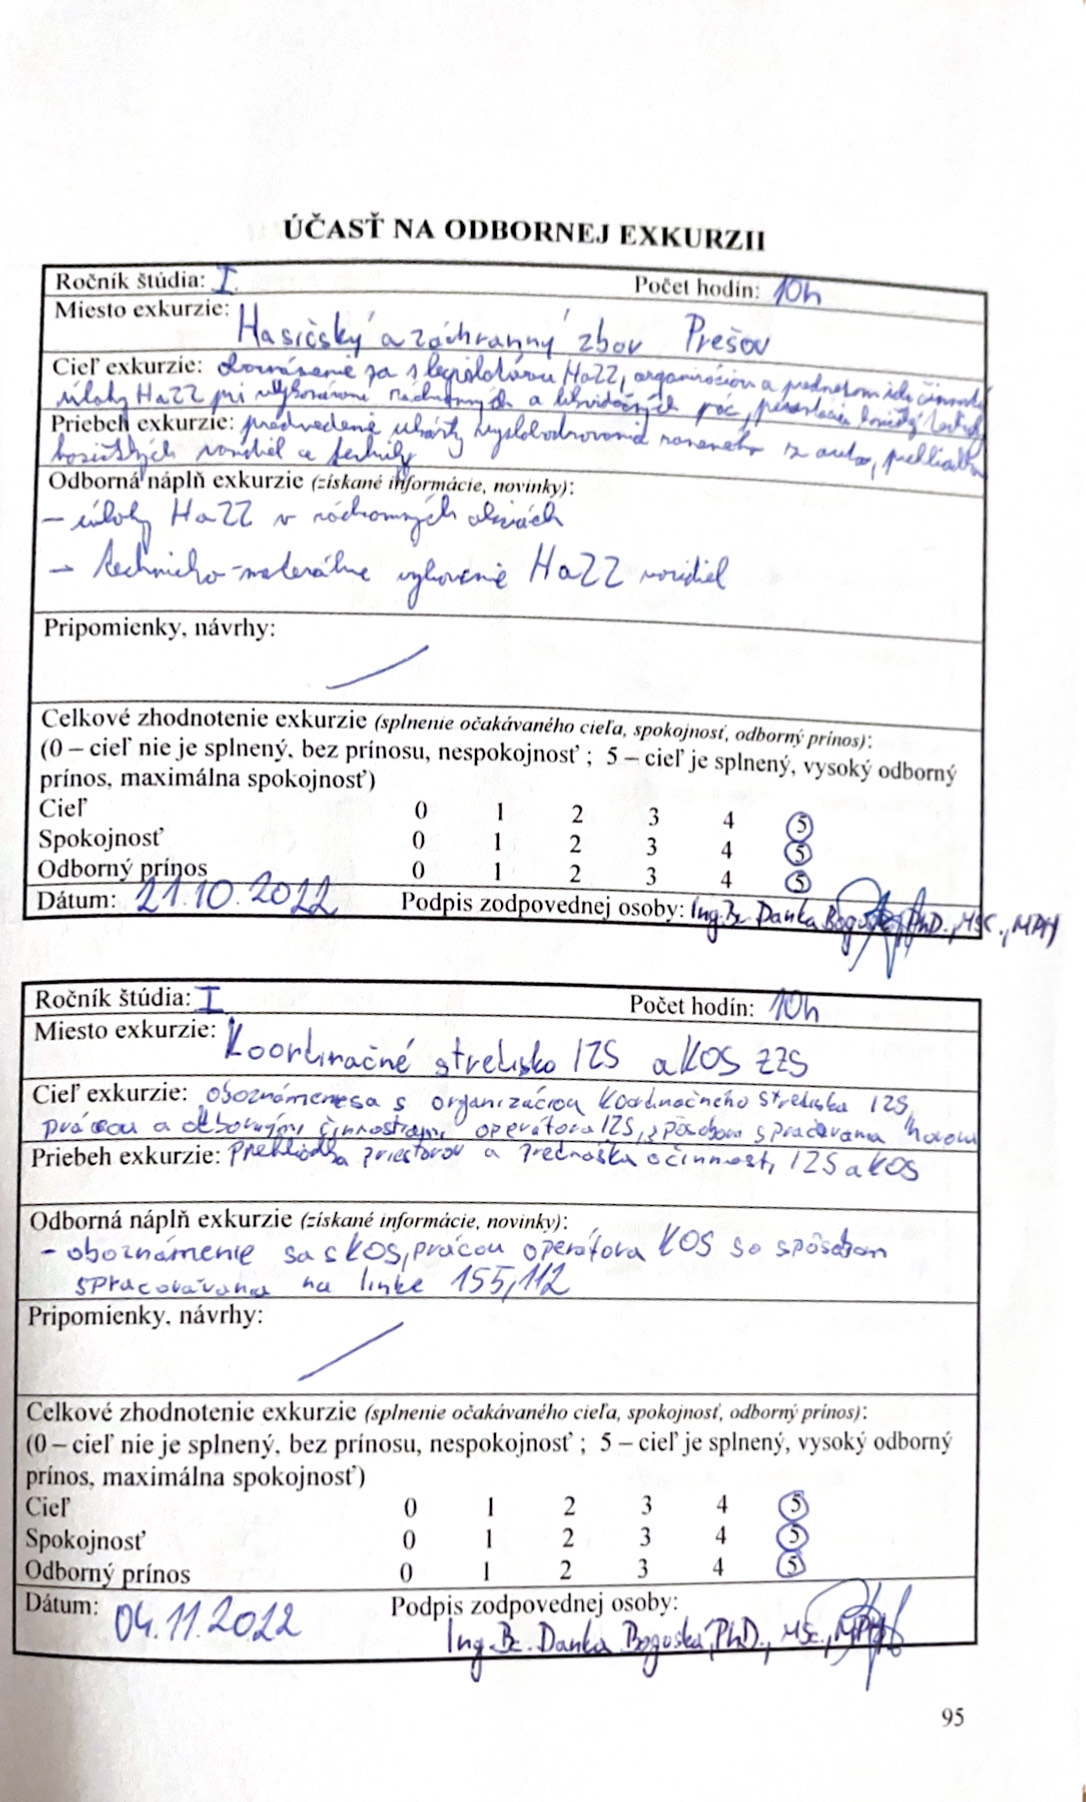 ÚČASŤ NA ODBORNEJ EXKURZII
Ročník štúdia: I. Počet hodín: 10h
Miesto exkurzie: Hasičský a záchranný zbor Prešov
Cieľ exkurzie: sa s legislatívou HaZZ, organizáciou a
úlohy HaZZ pri záchranných a likvidačných prác,
Priebeh exkurzie: predvedené ukážky vyslobodzovania raneného z auta, prehliadka
hasičských vozidiel a techniky
Odborná náplň exkurzie (získané informácie, novinky):
- úlohy HaZZ v záchranných akciách
- technicko-materiálne vybavenie HaZZ vozidiel
Pripomienky, návrhy:
Celkové zhodnotenie exkurzie (splnenie očakávaného cieľa, spokojnosť, odborný prínos):
(0 – cieľ nie je splnený, bez prínosu, nespokojnosť ; 5 – cieľ je splnený, vysoký odborný
prínos, maximálna spokojnosť)
Cieľ 0 1 2 3 4 5
Spokojnosť 0 1 2 3 4 5
Odborný prínos 0 1 2 3 4 5
Dátum: 21.10.2022 Podpis zodpovednej osoby: Ing. Bc. Danka PhD., MSc., MPH
Ročník štúdia: I Počet hodín: 10h
Miesto exkurzie: Koordinačné stredisko IZS a KOS ZZS
Cieľ exkurzie: oboznámenie sa s organizáciou Koordinačného strediska IZS,
prácou a odbornými činnosťami operátora IZS, spôsobom spracovania
Priebeh exkurzie: Prehliadka priestorov a prednáška o činnosti IZS a KOS
Odborná náplň exkurzie (získané informácie, novinky):
- oboznámenie sa s KOS, prácou operátora KOS so spôsobom
spracovávania na linke 155, 112
Pripomienky, návrhy:
Celkové zhodnotenie exkurzie (splnenie očakávaného cieľa, spokojnosť, odborný prínos):
(0 – cieľ nie je splnený, bez prínosu, nespokojnosť ; 5 – cieľ je splnený, vysoký odborný
prínos, maximálna spokojnosť)
Cieľ 0 1 2 3 4 5
Spokojnosť 0 1 2 3 4 5
Odborný prínos 0 1 2 3 4 5
Dátum: 04.11.2022 Podpis zodpovednej osoby:
Ing. Bc. Danka Boguská, PhD., MSc., MPH
95